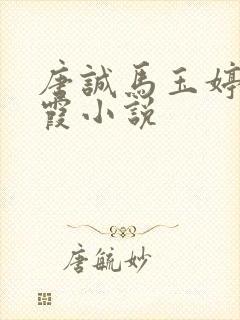 唐誠馬玉婷
霞小說
唐毓妙